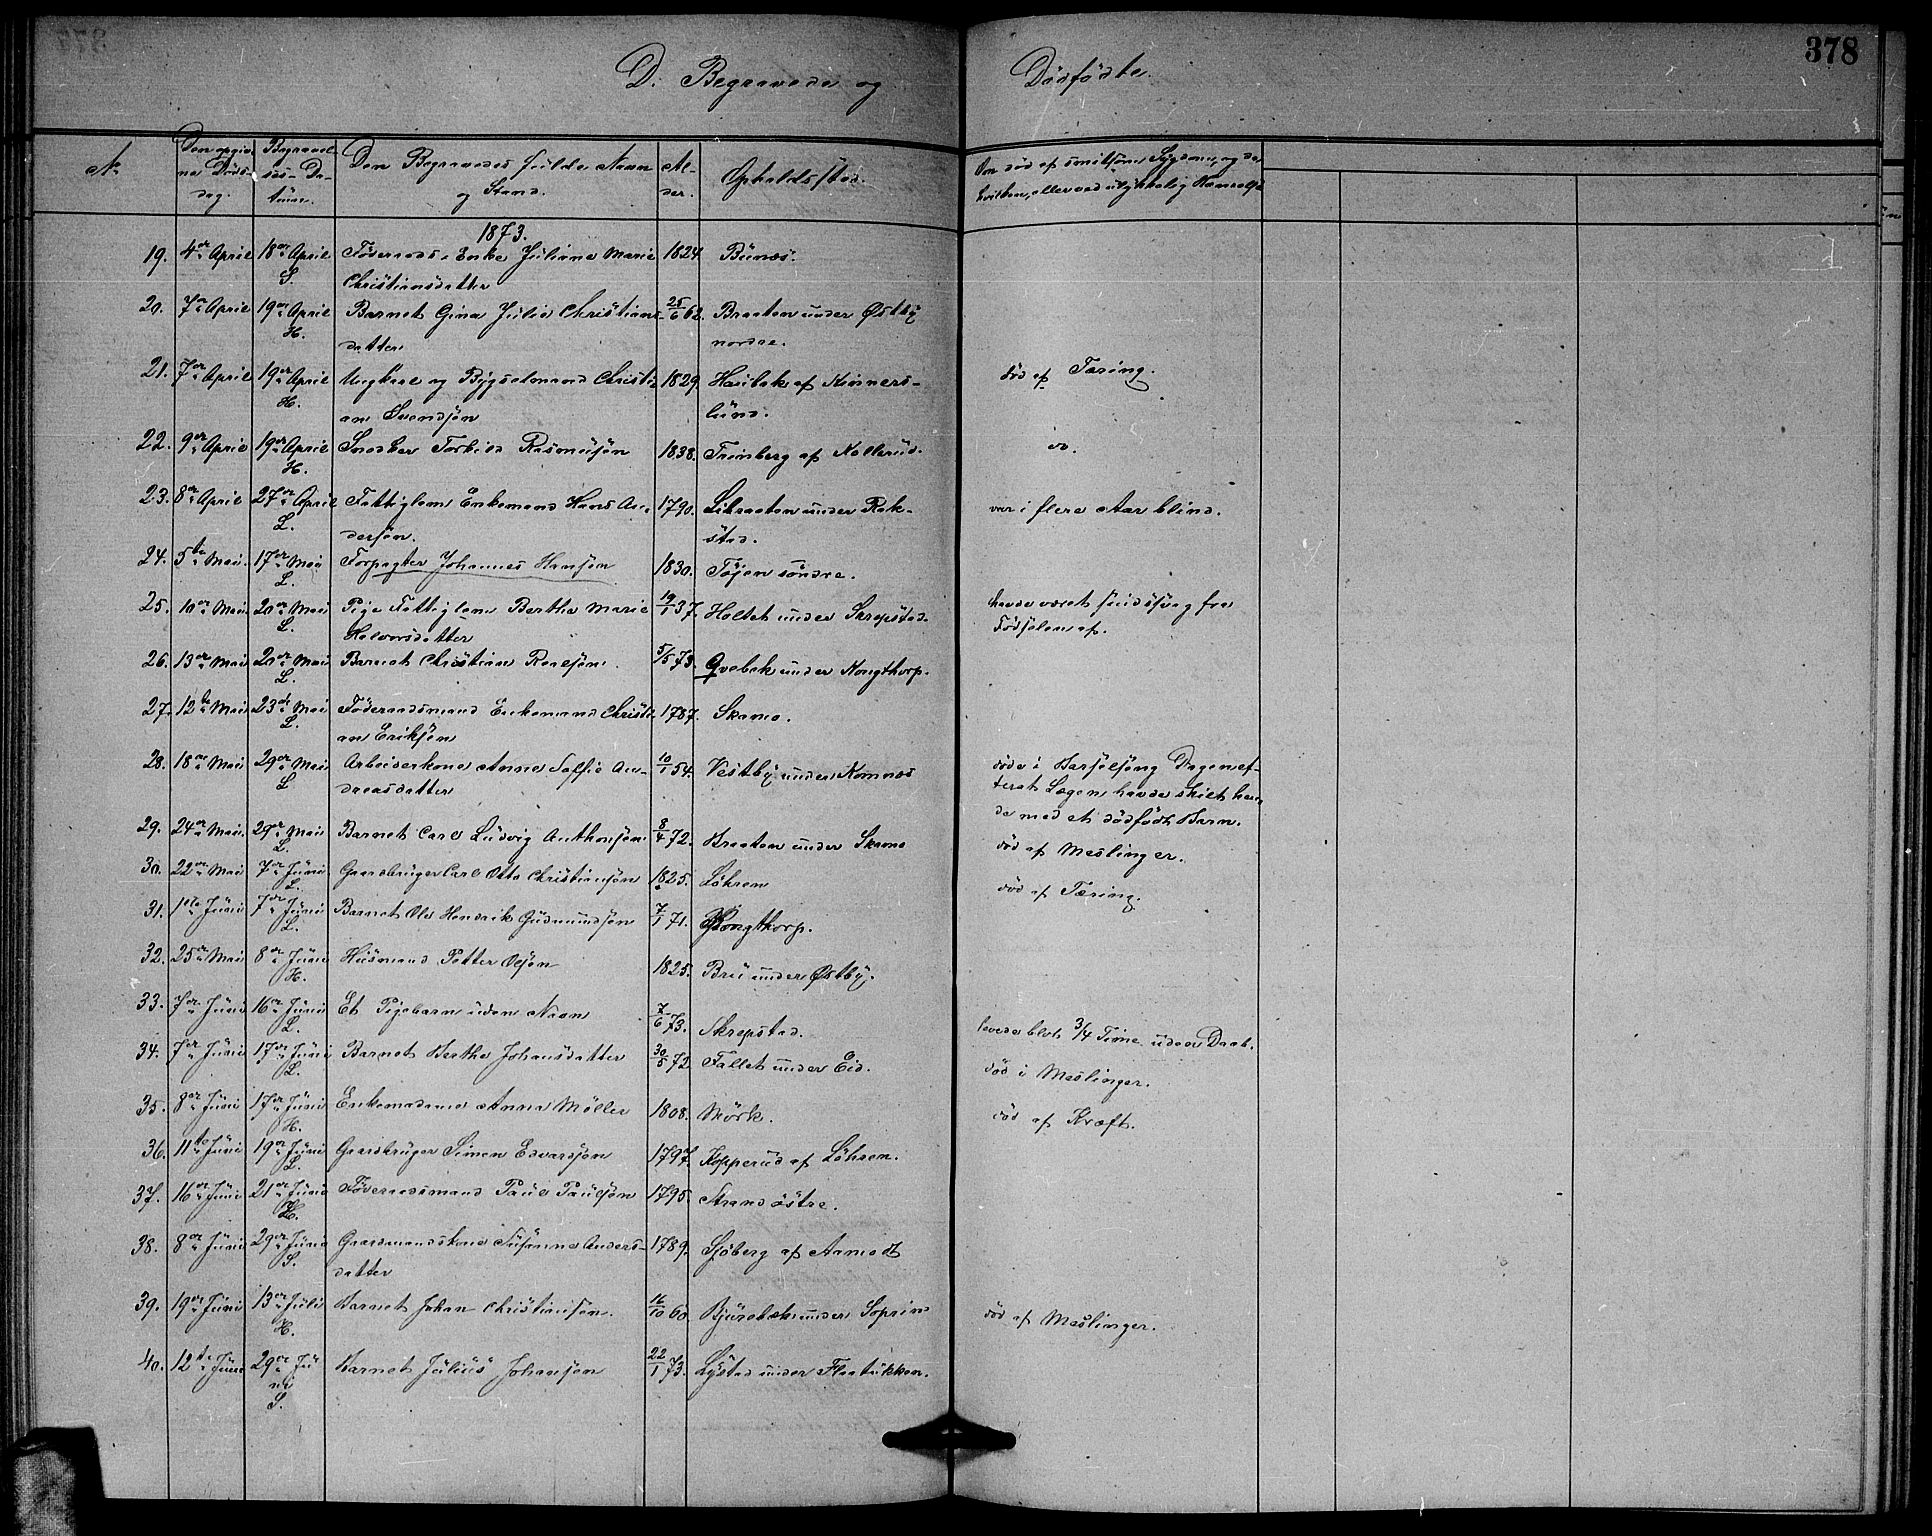 378
D. Begravede og Dödfödte.
No
Den opgivne Dödsdag.
Begravelses-Datum.
Den Begravedes fulde Navn og Stand.
Alder.
Opholdssted.
Om död af smitsom Sygdom, og da hvilken, eller ved ulykkelig Hændelse
1873.
19. 4de April 18de April Föderaads-Enke Juliane Marie 1824. Bunæs.
S. Christiansdatter
20. 7de April 19de April Barnet Gina Julie Christians- 25/6 62. Braaten under Østby
H. datter nordre.
21. 7de April 19de April Ungkarl og Bygselmand Christi- 1829. Haubek af Kinners- död af Tæring.
H. an Svendsön lund.
22. 9de April 19de April Snedker Torbid Rasmusön 1838. Trinberg af Kollerud. do.
H.
23. 8de April 27de April Fattiglem Enkemand Hans An- 1790. Libraaten under Rak- var i flere Aar blind.
L. dersön. stad.
24. 5te Mai. 17de Mai Forpagter Johannes Hansön 1830. Töjen söndre.
L.
25. 10de Mai. 20de Mai Pige Fattiglem Berthe Marie 19/1 37. Holtet under Skrepstad. havde været sindssvag fra
L. Halvorsdatter Födselen af.
26. 13de Mai 20de Mai Barnet Christian Roersön. 5/5 73. Qvebek under Kongthorp.
L.
27. 12te Mai 23de Mai Föderaadsmand Enkemand Christi- 1787. Skamo.
L. an Eriksön
28. 18de Mai 29de Mai Arbeiderkone Anne Soffie An- 10/1 54. Vestby under Komnæs döde i Barselseng Dagen ef-
L dreasdatter terat Lægen havde skilt hen-
de med et dödfödt Barn.
29. 24de Mai. 29de Mai Barnet Carl Ludvig Anthonsön 8/4 72. Braaten under Skamo död af Meslinger.
L.
30. 22de Mai 7de Juni Gaardbruger Carl Otto Christiansön 1825. Löhren död af Tæring.
L.
31. 1ste Juni 7de Juni Barnet Ole Hendrik Gudmundsön 7/1 71. Kongthorp.
L.
32. 25de Mai 8de Juni Husmand Petter Olsön 1825. Bru under Østby.
H.
33. 7de Juni 16de Juni Et Pigebarn uden Navn 7/6 73. Skrepstad. levede blot 3/4 Time uden Daab.
L.
34. 7de Juni 17de Juni Barnet Berthe Johansdatter 30/5 72 Fallet under Eid. död i Meslinger.
L.
35. 8de Juni 17de Juni Enkemadame Anna Möller 1808. Mörk. död af Kræft.
H.
36. 11te Juni 19de Juni Gaardbruger Simen Edvardsön 1797. Kopperud af Löhren.
L.
37. 16de Juni 21de Juni Föderaadsmand Paul Paulsön 1795. Strand östre.
H.
38. 8de Juni 29de Juni Gaardmandskone Susanne Anders- 1789. Sjöberg af Aamodt
S. datter
39. 19de Juni 13de Juli Barnet Johan Christiansön. 16/10 60. Bjurebek under Soprim död af Meslinger.
H.
40. 12te Juni 29de Ju- Barnet Julius Johansön 22/1 73. Lystad under Flaatukken.
ni
S.